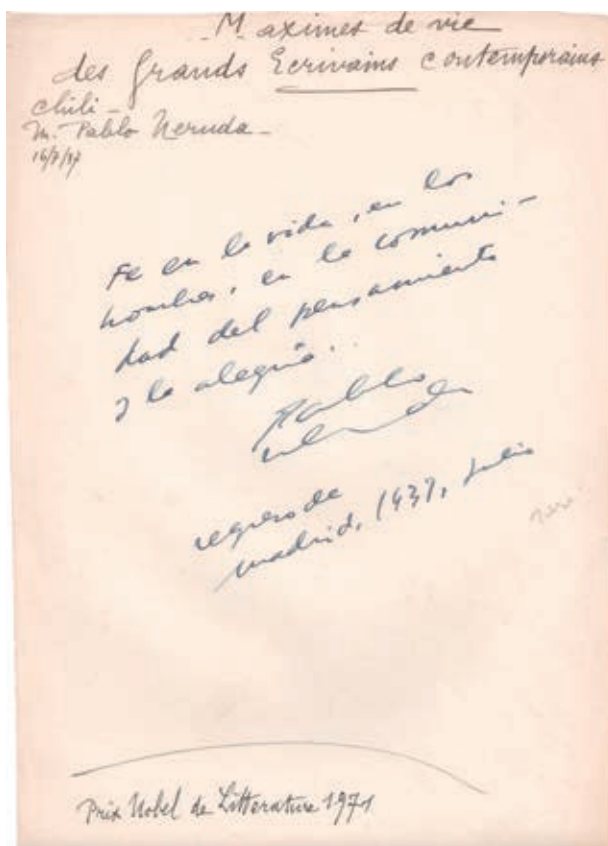 Maximes de vie
des Grands Ecrivains contemporains
chili -
M. Pablo Neruda -
16/7/37
Fe en la vida, en los
hombres, en la comuni-
dad del pensamiento
y la alegria..
Pablo
Neruda
regreso de
madrid, 1937, Julio
Prix Nobel de Litterature 1971